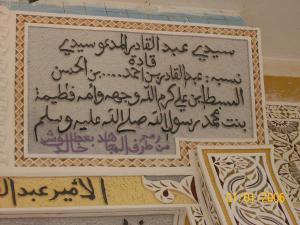 سيدي عبد القادر المدعو سيدي
قادة
نسبه: عبد القادر بن احمد.... بن الحسن
السبط بن علي كرم الله وجهه وامه فطيمة
بنت محمد رسول الله صلى الله عليه وسلم
من طرف
خالد
الأمير عبد ال
01/01/2006